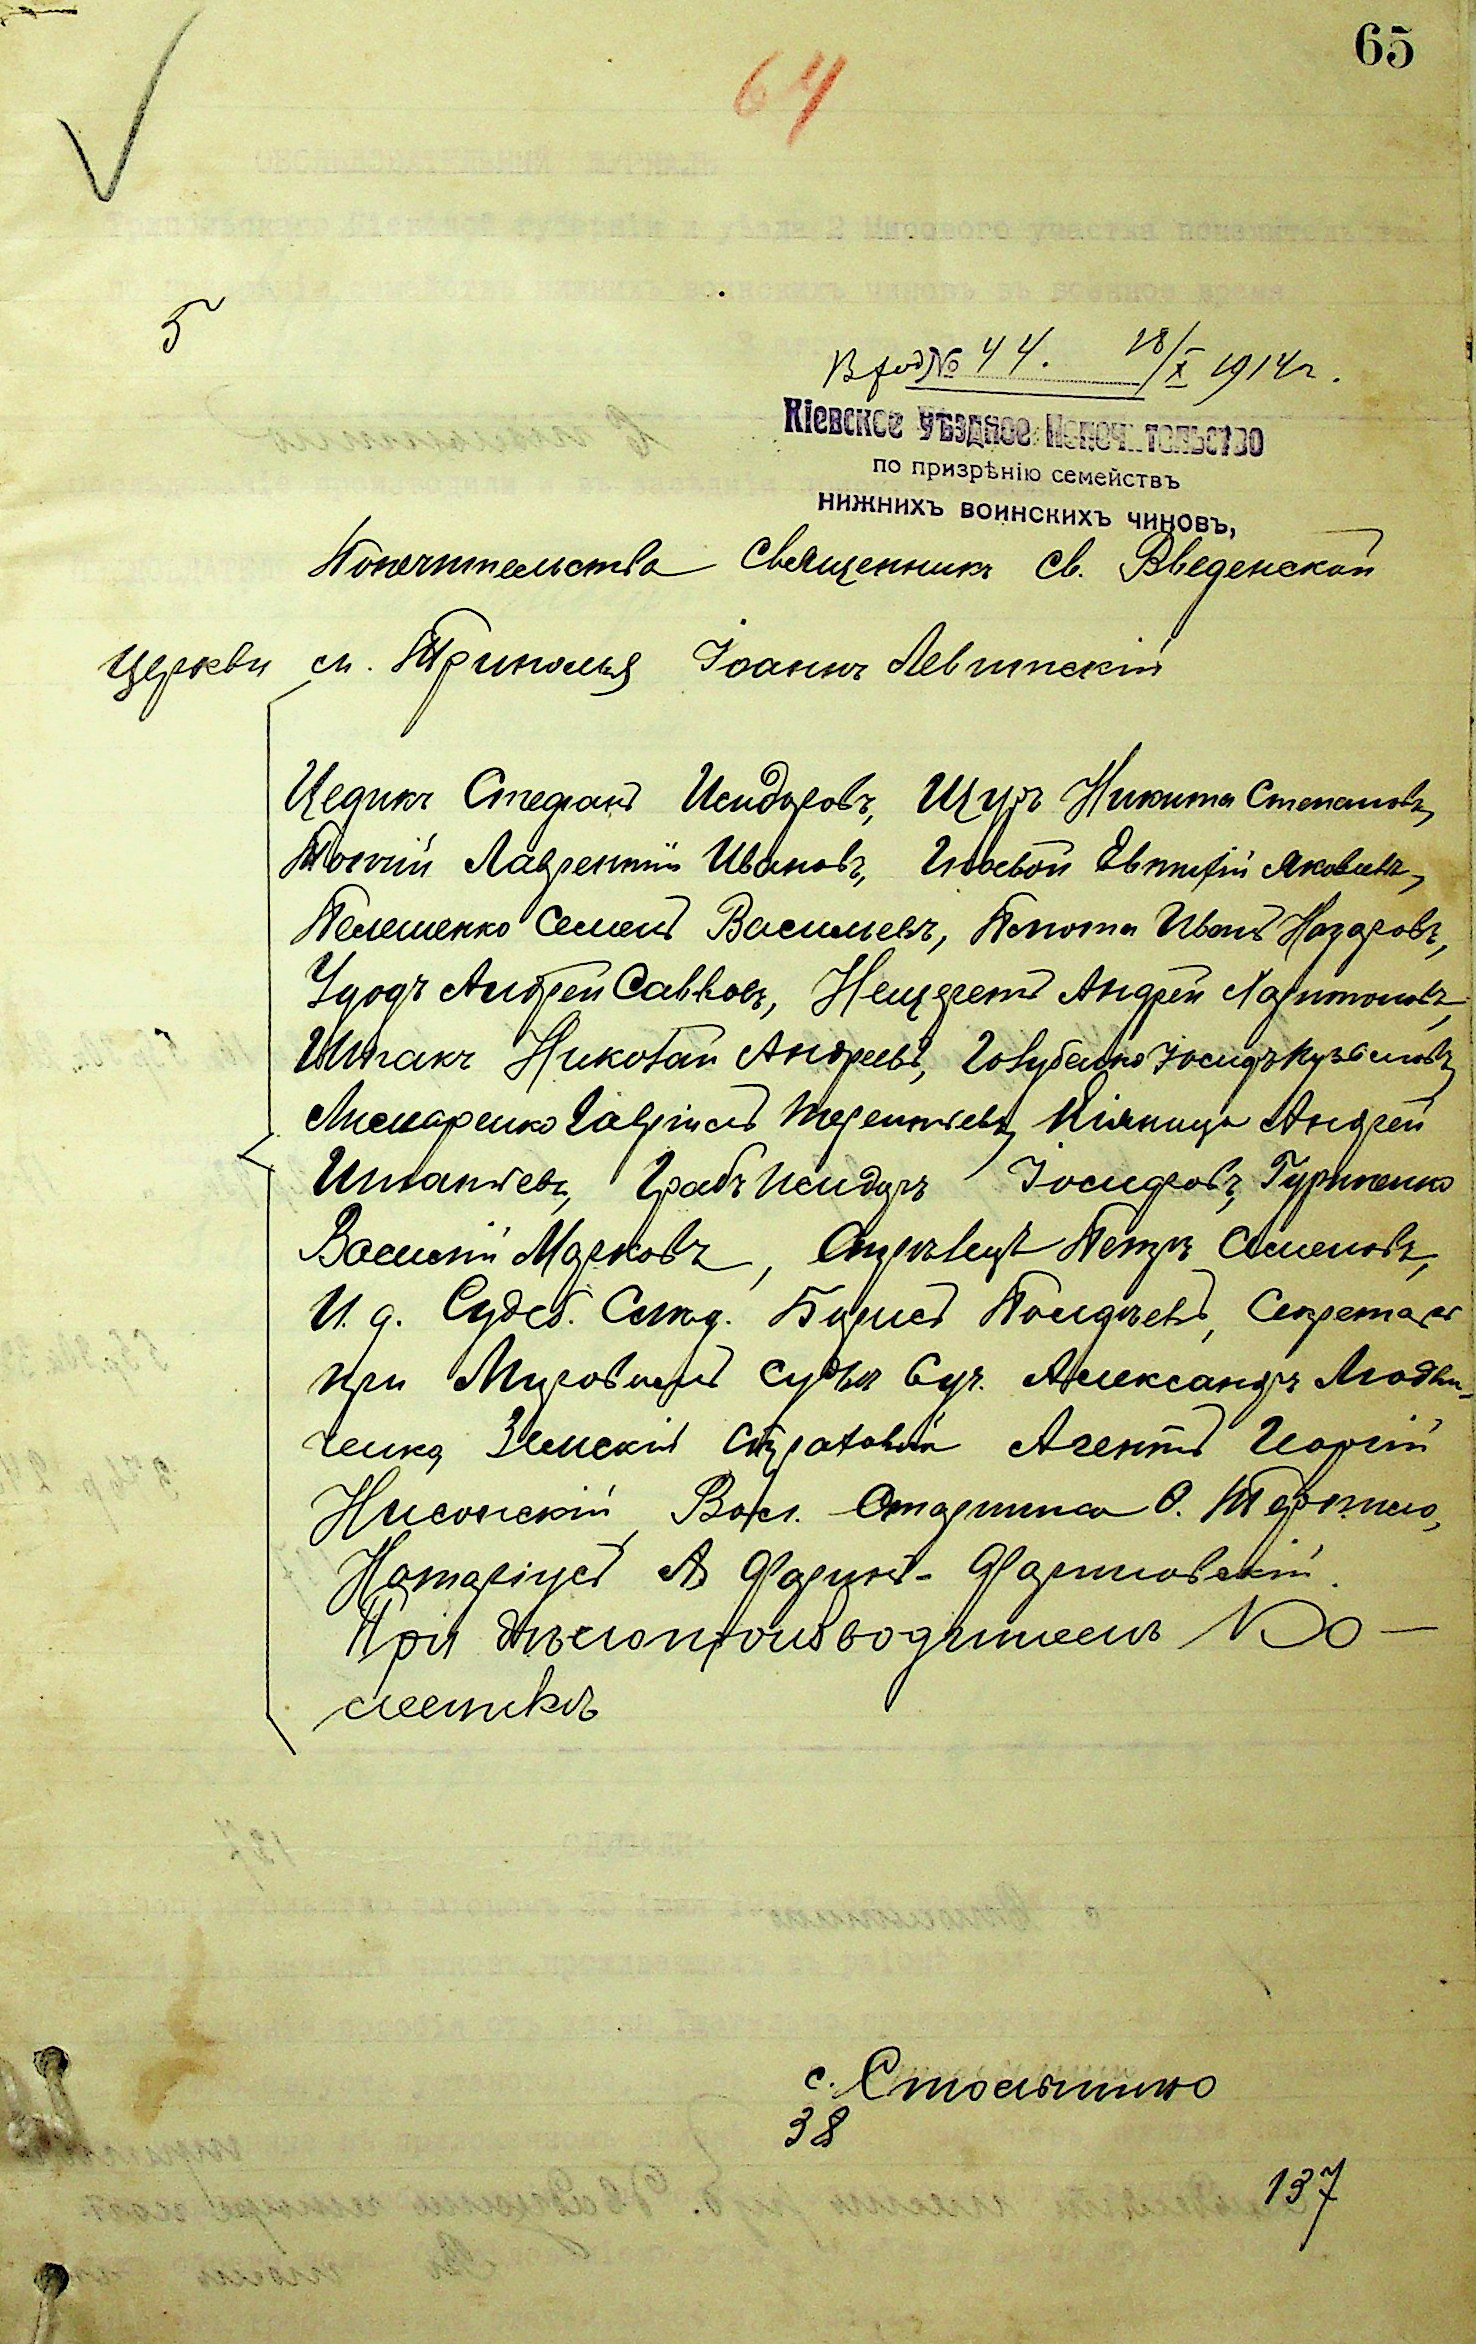 65
64
5
Вход № 44. 18/X 1914 г.
Кіевское Уѣздное Попеч..тельство
по призрѣнію семействъ
нижнихъ воинскихъ чиновъ,
Попечительства Священникъ Св. Введенской
Церкви м. Триполья Іоаннъ Левитскій
Цедикъ Стефанъ Исидоровъ, Щуръ Никита Степановъ,
Лаврентій Ивановъ, Евтихій Яковлевъ,
Пелешенко Семенъ Васильевъ, Иванъ Назаровъ,
Удодъ Андрей Савковъ, Нещеретъ Андрей Харитоновъ,
Шпакъ Николай Андреевъ, Голубенко Іосифъ Кузьмовъ,
Лисмаренко Гавріилъ Терентіевъ, Кіяница Андрей
Игнатіевъ, Грабъ Исидоръ Іосифовъ, Гуртенко
Василій Марковъ, Петръ Семеновъ,
И. д. Судеб. Слѣд. Борисъ Секретарь
при Мировомъ Судьи 6 уч. Александръ
Земскій Страховой Агентъ Георгій
Вол. Старшина
Нотаріусъ А Фаринъ-Фариновскій.
При дѣлопроизводителѣ
с. Стольпино
38
137